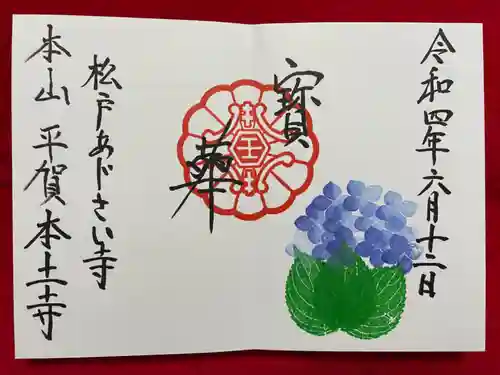 令和四年六月十二日
寳華
王
松戸あじさい寺
本山 平賀本土寺